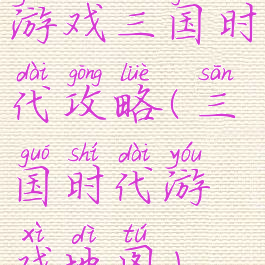 游戏三国时
dài gōng lüè sān
代攻略(三
guó shí dài yóu
国时代游
xì dì tú
戏地图)